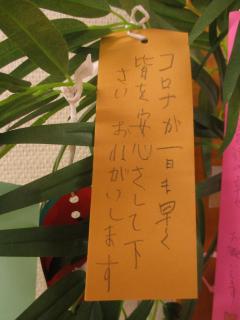 コロナが一日も早く
皆を安心さして下
さい おねがいします